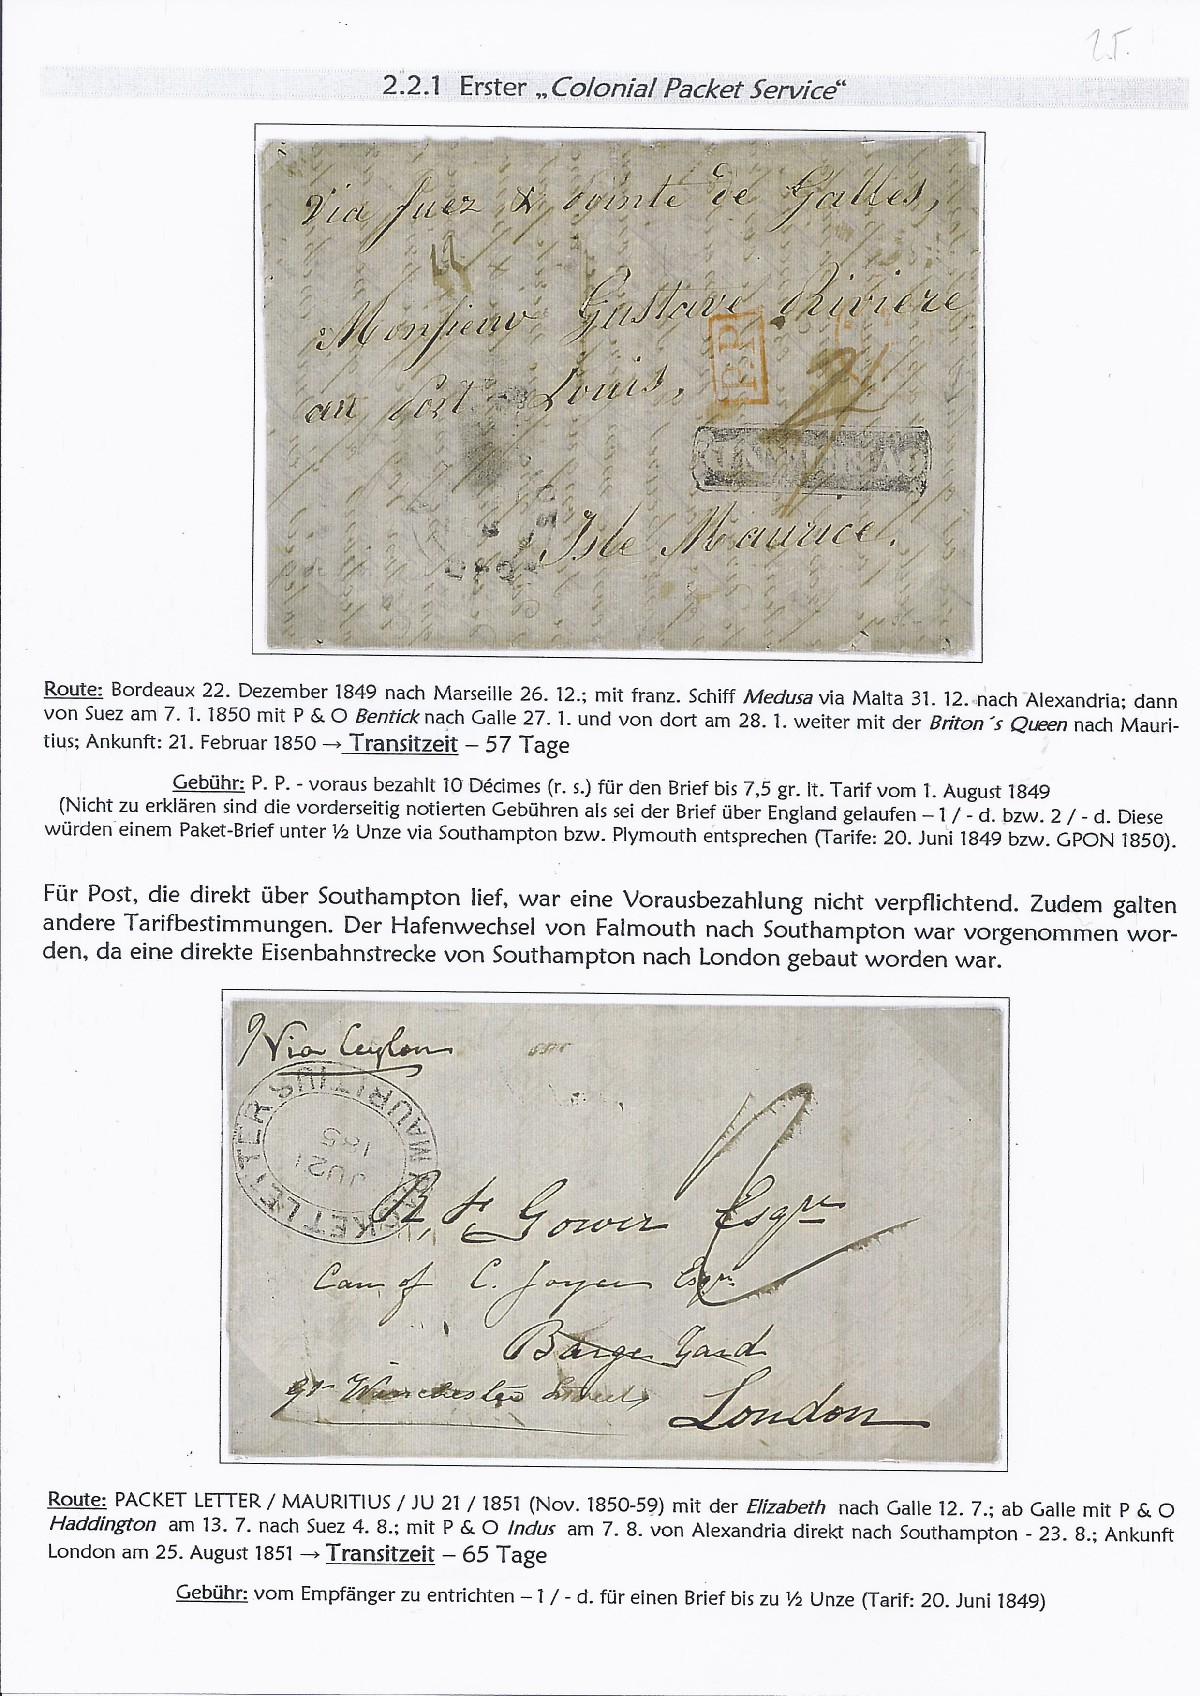 25.
2.2.1 Erster „Colonial Packet Service“
Via Suez & pointe de Galles,
Monsieur Gustave Riviere
P.P.
au Port Louis,
OVERLAND
Isle Maurice.
Route: Bordeaux 22. Dezember 1849 nach Marseille 26. 12.; mit franz. Schiff Medusa via Malta 31. 12. nach Alexandria; dann
von Suez am 7. 1. 1850 mit P & O Bentick nach Galle 27. 1. und von dort am 28. 1. weiter mit der Briton´s Queen nach Mauri-
tius; Ankunft: 21. Februar 1850 → Transitzeit – 57 Tage
Gebühr: P. P. - voraus bezahlt 10 Décimes (r. s.) für den Brief bis 7,5 gr. lt. Tarif vom 1. August 1849
(Nicht zu erklären sind die vorderseitig notierten Gebühren als sei der Brief über England gelaufen – 1 / - d. bzw. 2 / - d. Diese
würden einem Paket-Brief unter ½ Unze via Southampton bzw. Plymouth entsprechen (Tarife: 20. Juni 1849 bzw. GPON 1850).
Für Post, die direkt über Southampton lief, war eine Vorausbezahlung nicht verpflichtend. Zudem galten
andere Tarifbestimmungen. Der Hafenwechsel von Falmouth nach Southampton war vorgenommen wor-
den, da eine direkte Eisenbahnstrecke von Southampton nach London gebaut worden war.
Via Ceylon
PACKET LETTER MAURITIUS
JU 21
185
R. F. Gower Esqre
Care of C. Joyce Esqre
Barge Yard
London
Route: PACKET LETTER / MAURITIUS / JU 21 / 1851 (Nov. 1850-59) mit der Elizabeth nach Galle 12. 7.; ab Galle mit P & O
Haddington am 13. 7. nach Suez 4. 8.; mit P & O Indus am 7. 8. von Alexandria direkt nach Southampton - 23. 8.; Ankunft
London am 25. August 1851 → Transitzeit – 65 Tage
Gebühr: vom Empfänger zu entrichten – 1 / - d. für einen Brief bis zu ½ Unze (Tarif: 20. Juni 1849)